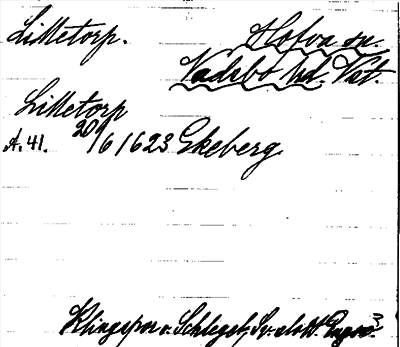 Lilletorp.
Hofva sn.
Vadsbo hd. Vst.
Lilletorp
A. 41. 20/6 1623 Ekeberg
Klingspor o. Schlegel, Sv. slott.